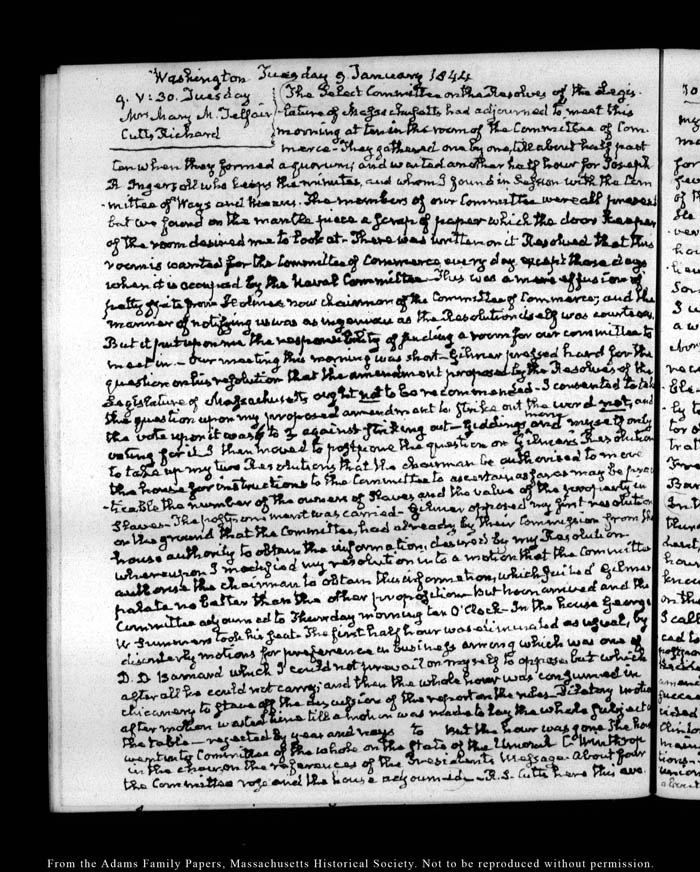 Washington Tuesday 9. January 1844
9. V:30. Tuesday
Mrs Mary M. Telfair
Cutts Richard
The Select Committee on the Resolves of the Legis-
lature of Massachusetts had adjourned to meet this
morning at ten in the room of the Committee of Com-
merce - They gathered one by one, till about half past
ten when they formed a quorum; and waited another half hour for Joseph
R. Ingersoll who keeps the minutes, and whom I found in Session with the Com
mittee of Ways and Means. The members of our Committee were all present
but we found on the mantle piece a scrap of paper which the door keeper
of the room desired me to look at - There was written on it Resolved that this
room is wanted for the Committee of Commerce every day except those days
when it is occupied by the Naval Committee - This was a mere effusion of
from Holmes now chairman of the Committee of Commerce; and the
manner of notifying us was as ingenuous as the Resolution itself was courteous.
But it put upon me the responsibility of finding a room for our committee to
meet in. - Our meeting this morning was short - Gilmer pressed hard for the
question on his resolution that the amendment proposed by the Resolves of the
Legislature of Massachusetts ought not to be recommended - I consented to take
the question upon my proposed amendment to strike out the word not, and
the vote upon it was 6 to 2 against striking out - Giddings and myself only
voting for it. I then moved to postpone the question on Gilmer's Resolution
to take up my two Resolutions that the chairman be authorised to move
the house for instructions to the Committee to ascertain as far as may be prac
ticable the number of the owners of Slaves and the value of the property in
Slaves - The postponement was carried - Gilmer opposed my first resolution
on the ground that the Committee, had already by their Commission from the
house authority to obtain the information, desired by my Resolution
whereupon I modified my resolution into a motion that the Committee
authorise the chairman to obtain this information, which suited Gilmer's
palate no better than the other proposition - But noon arrived and the
Committee adjourned to Thursday morning ten O'Clock - In the house George
W Summers took his seat. The first half hour was as usual, by
disorderly motions for preference in business among which was one of
D. D Barnard which I could not prevail on myself to oppose but which
after all he could not carry; and then the whole hour was consumed in
chicanery to stave off the discussion of the report on the rules. Dilatory motion
after motion wasted time till a motion was made to lay the whole subject on
the table - rejected by yeas and nays to but the hour was gone. The house
went into Committee of the whole on the state of the Union C. Winthrop
in the chair, on the references of the President's Message. About four
the Committee rose and the house adjourned - R. D. Cutts here this eve.
From the Adams Family Papers, Massachusetts Historical Society. Not to be reproduced without permission.